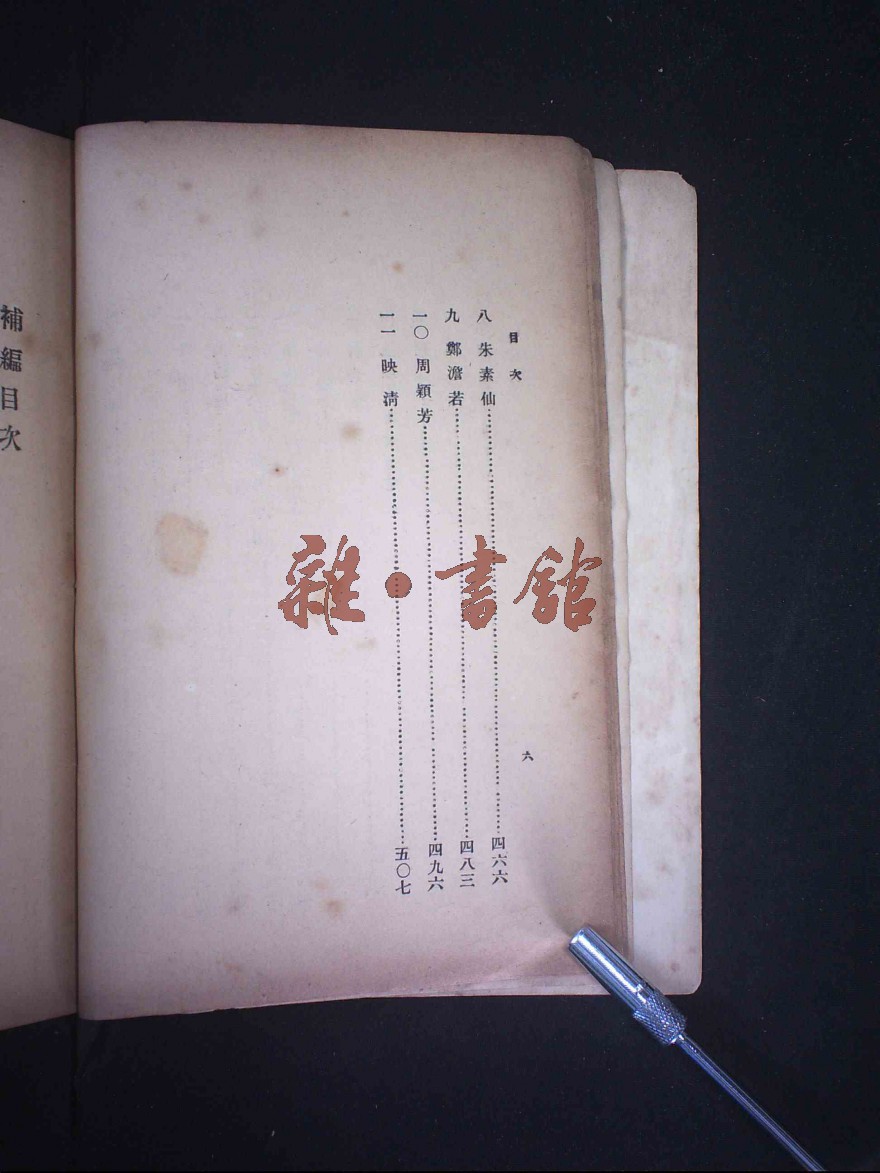 目次
八 朱素仙……四六六
九 鄭澹若……四八三
一〇 周穎芳……四九六
一一 映清……五〇七
六
補編目次
雜·書館